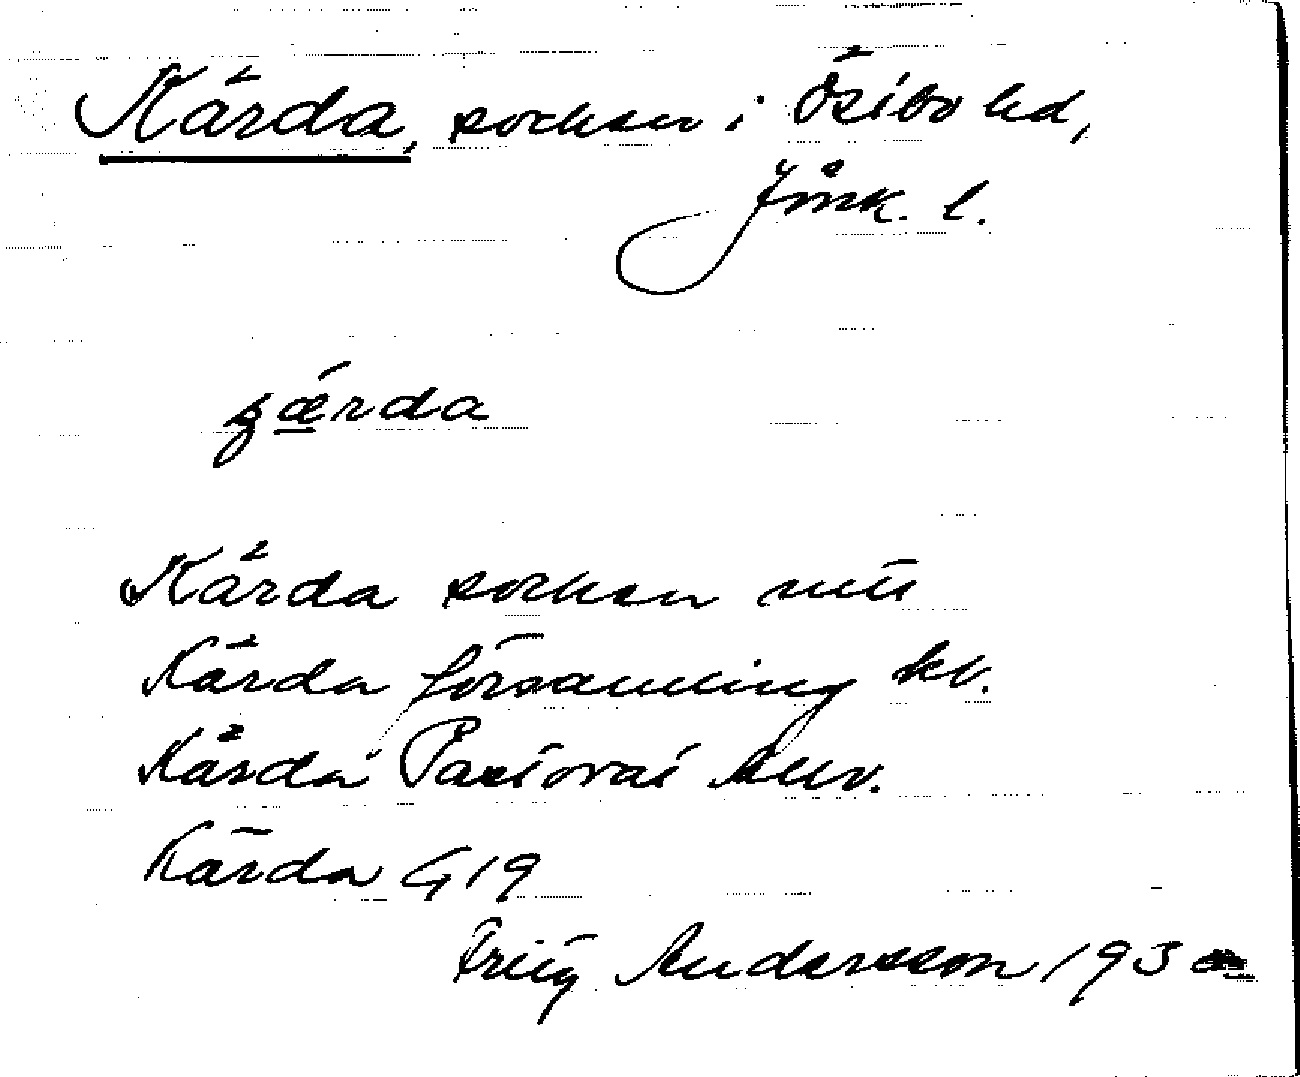 Kärda, socken i Östbo hd,
Jönk. l.
ɕǽrda
Kärda socken
Kärda församling kv.
Kärda Pastorat
Kärda G 19
Andersson 193